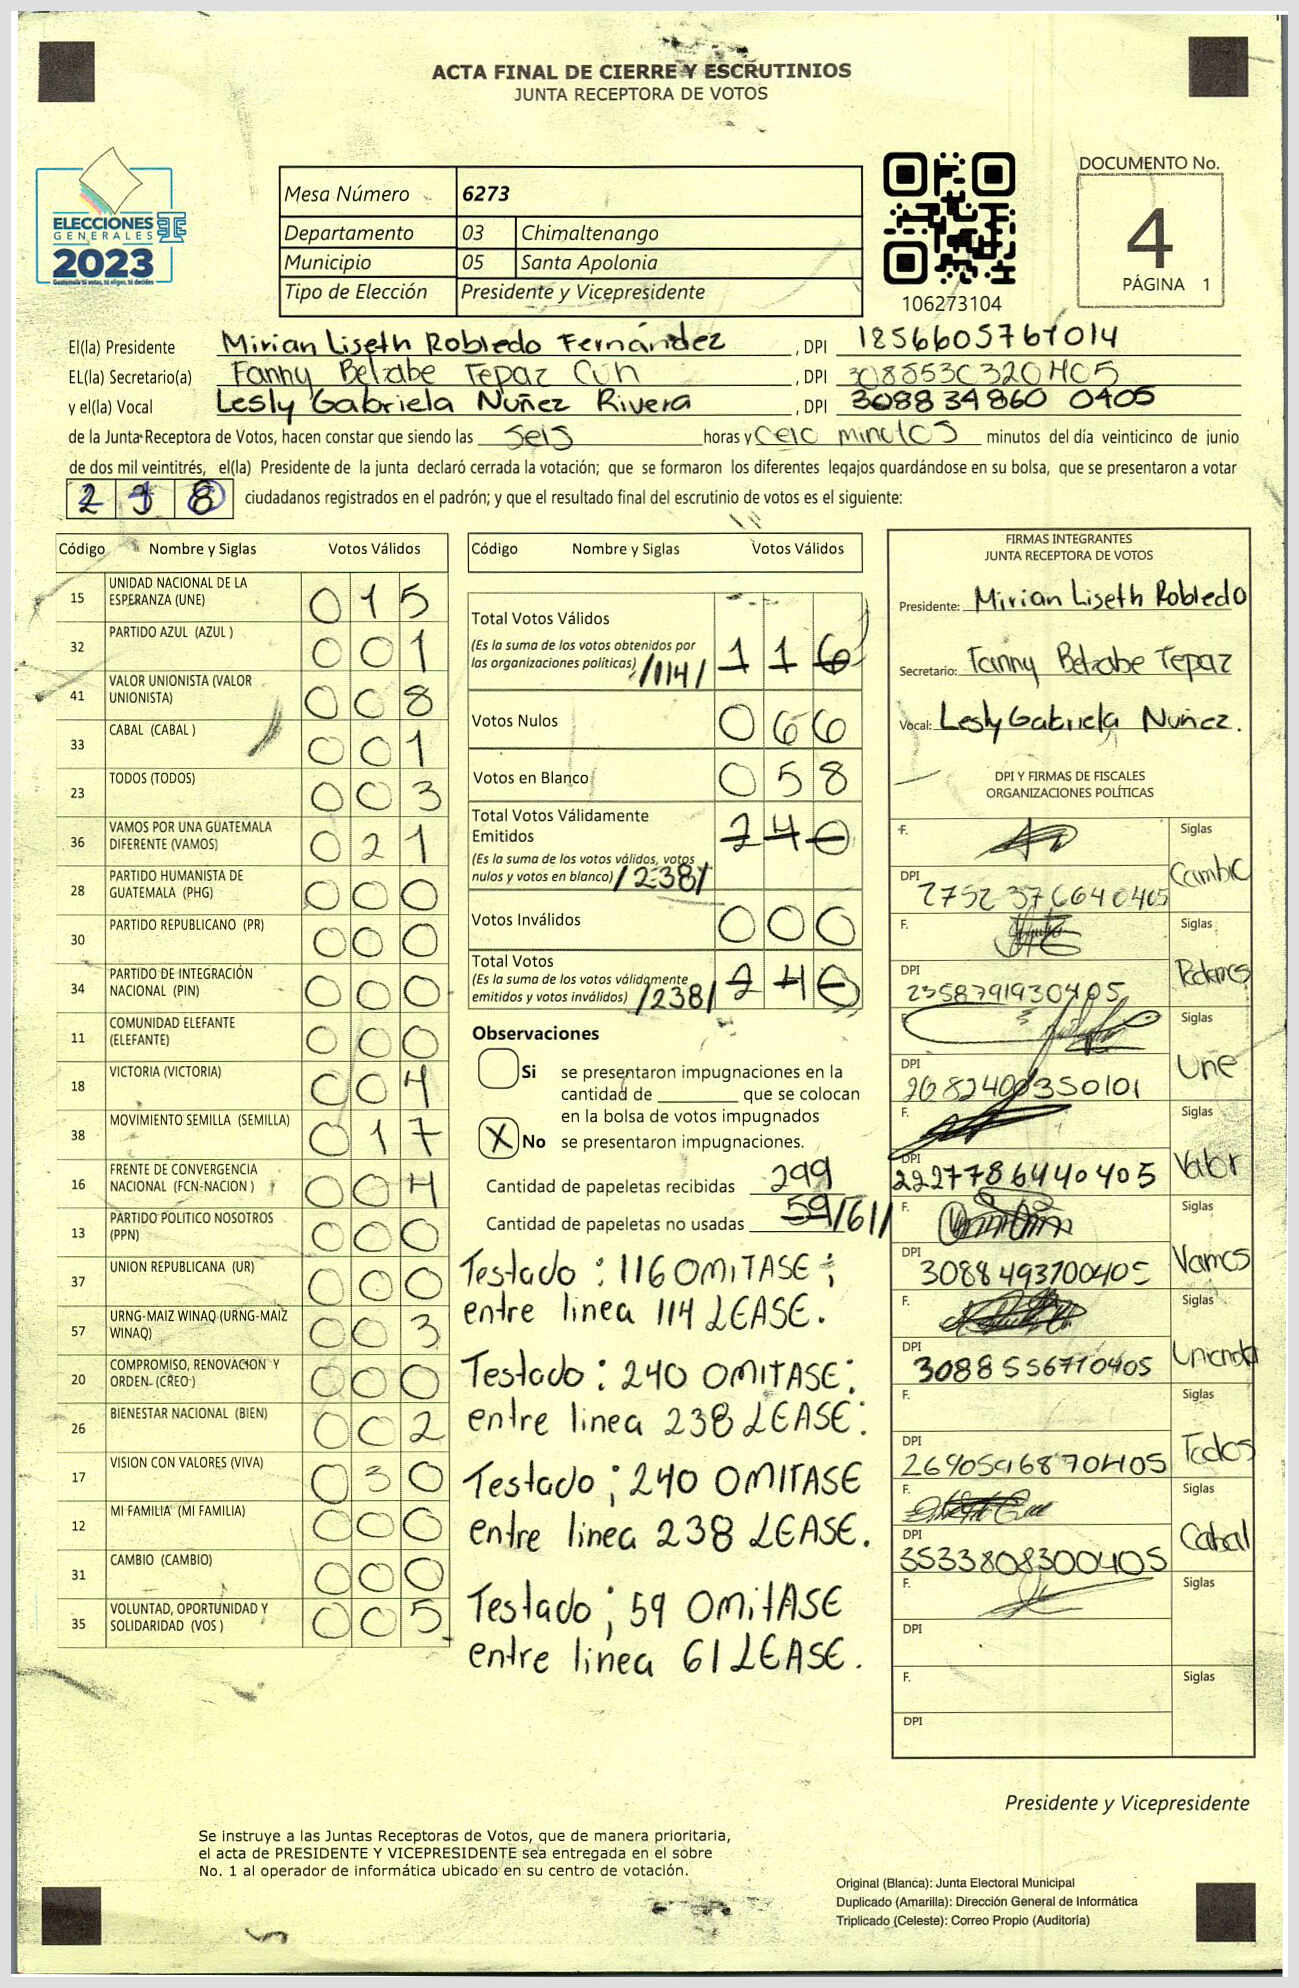 ACTA FINAL DE CIERRE Y ESCRUTINIOS
JUNTA RECEPTORA DE VOTOS
ELECCIONES
GENERALES
2023
Guatemala tú votas, tú eliges, tú decides
Mesa Número 6273
Departamento 03 Chimaltenango
Municipio 05 Santa Apolonia
Tipo de Elección Presidente y Vicepresidente
106273104
DOCUMENTO No.
4
PÁGINA 1
El(la) Presidente Mirian Liseth Robledo Fernández , DPI
EL(la) Secretario(a) Fanny Betzabe Tepaz Cun , DPI
y el(la) Vocal Lesly Gabriela Nuñez Rivera , DPI 308834860 0405
de la Junta Receptora de Votos, hacen constar que siendo las seis horas y cero minutos minutos del día veinticinco de junio
de dos mil veintitrés, el(la) Presidente de la junta declaró cerrada la votación; que se formaron los diferentes legajos guardándose en su bolsa, que se presentaron a votar
238 ciudadanos registrados en el padrón; y que el resultado final del escrutinio de votos es el siguiente:
Código Nombre y Siglas Votos Válidos
15 UNIDAD NACIONAL DE LA
ESPERANZA (UNE) 015
32 PARTIDO AZUL (AZUL ) 001
41 VALOR UNIONISTA (VALOR
UNIONISTA) 008
33 CABAL (CABAL ) 001
23 TODOS (TODOS) 003
36 VAMOS POR UNA GUATEMALA
DIFERENTE (VAMOS) 021
28 PARTIDO HUMANISTA DE
GUATEMALA (PHG) 000
30 PARTIDO REPUBLICANO (PR) 000
34 PARTIDO DE INTEGRACIÓN
NACIONAL (PIN) 000
11 COMUNIDAD ELEFANTE
(ELEFANTE) 000
18 VICTORIA (VICTORIA) 004
38 MOVIMIENTO SEMILLA (SEMILLA) 017
16 FRENTE DE CONVERGENCIA
NACIONAL (FCN-NACION ) 004
13 PARTIDO POLITICO NOSOTROS
(PPN) 000
37 UNION REPUBLICANA (UR) 000
57 URNG-MAIZ WINAQ (URNG-MAIZ
WINAQ) 003
20 COMPROMISO, RENOVACION Y
ORDEN (CREO ) 000
26 BIENESTAR NACIONAL (BIEN) 002
17 VISION CON VALORES (VIVA) 030
12 MI FAMILIA (MI FAMILIA) 000
31 CAMBIO (CAMBIO) 000
35 VOLUNTAD, OPORTUNIDAD Y
SOLIDARIDAD (VOS ) 005
Código Nombre y Siglas Votos Válidos
Total Votos Válidos
(Es la suma de los votos obtenidos por
las organizaciones políticas) /114/ 116
Votos Nulos 066
Votos en Blanco 058
Total Votos Válidamente
Emitidos 240
(Es la suma de los votos válidos, votos
nulos y votos en blanco) /238/
Votos Inválidos 000
Total Votos
(Es la suma de los votos válidamente
emitidos y votos inválidos) /238/ 240
Observaciones
Si se presentaron impugnaciones en la
cantidad de ________ que se colocan
en la bolsa de votos impugnados
X No se presentaron impugnaciones.
Cantidad de papeletas recibidas 299
Cantidad de papeletas no usadas 59/61/
Testado : 116 OMITASE ;
entre linea 114 LEASE.
Testado : 240 OMITASE:
entre linea 238 LEASE:
Testado ; 240 OMITASE
entre linea 238 LEASE.
Testado ; 59 OMITASE
entre linea 61 LEASE.
FIRMAS INTEGRANTES
JUNTA RECEPTORA DE VOTOS
Presidente: Mirian Liseth Robledo
Secretario: Fanny Betzabe Tepaz
Vocal: Lesly Gabriela Nuñez.
DPI Y FIRMAS DE FISCALES
ORGANIZACIONES POLÍTICAS
F. Siglas
DPI 2752376640405 Cambio
F. Siglas
DPI 2358791930405 Podemos
F. Siglas
DPI 2082400350101 Une
F. Siglas
DPI 2227786440405 Valor
F. Siglas
DPI 3088493700405 Vamos
F. Siglas
DPI 3088556710405
F. Siglas
DPI 2690596870405 Todos
F. Siglas
DPI 3533808300405 Cabal
F. Siglas
DPI
F. Siglas
DPI
Presidente y Vicepresidente
Se instruye a las Juntas Receptoras de Votos, que de manera prioritaria,
el acta de PRESIDENTE Y VICEPRESIDENTE sea entregada en el sobre
No. 1 al operador de informática ubicado en su centro de votación.
Original (Blanca): Junta Electoral Municipal
Duplicado (Amarilla): Dirección General de Informática
Triplicado (Celeste): Correo Propio (Auditoría)